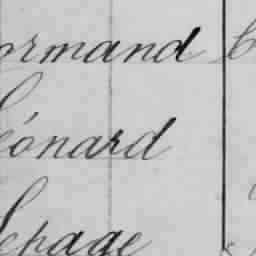 ormand
Léonard
Lepage